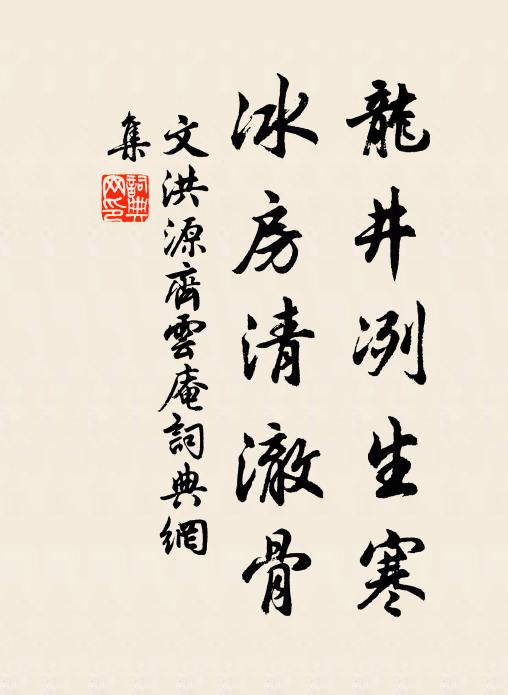 龍井冽生寒
冰房清澈骨
文洪源齊雲庵詞典網
集
詞典
网印